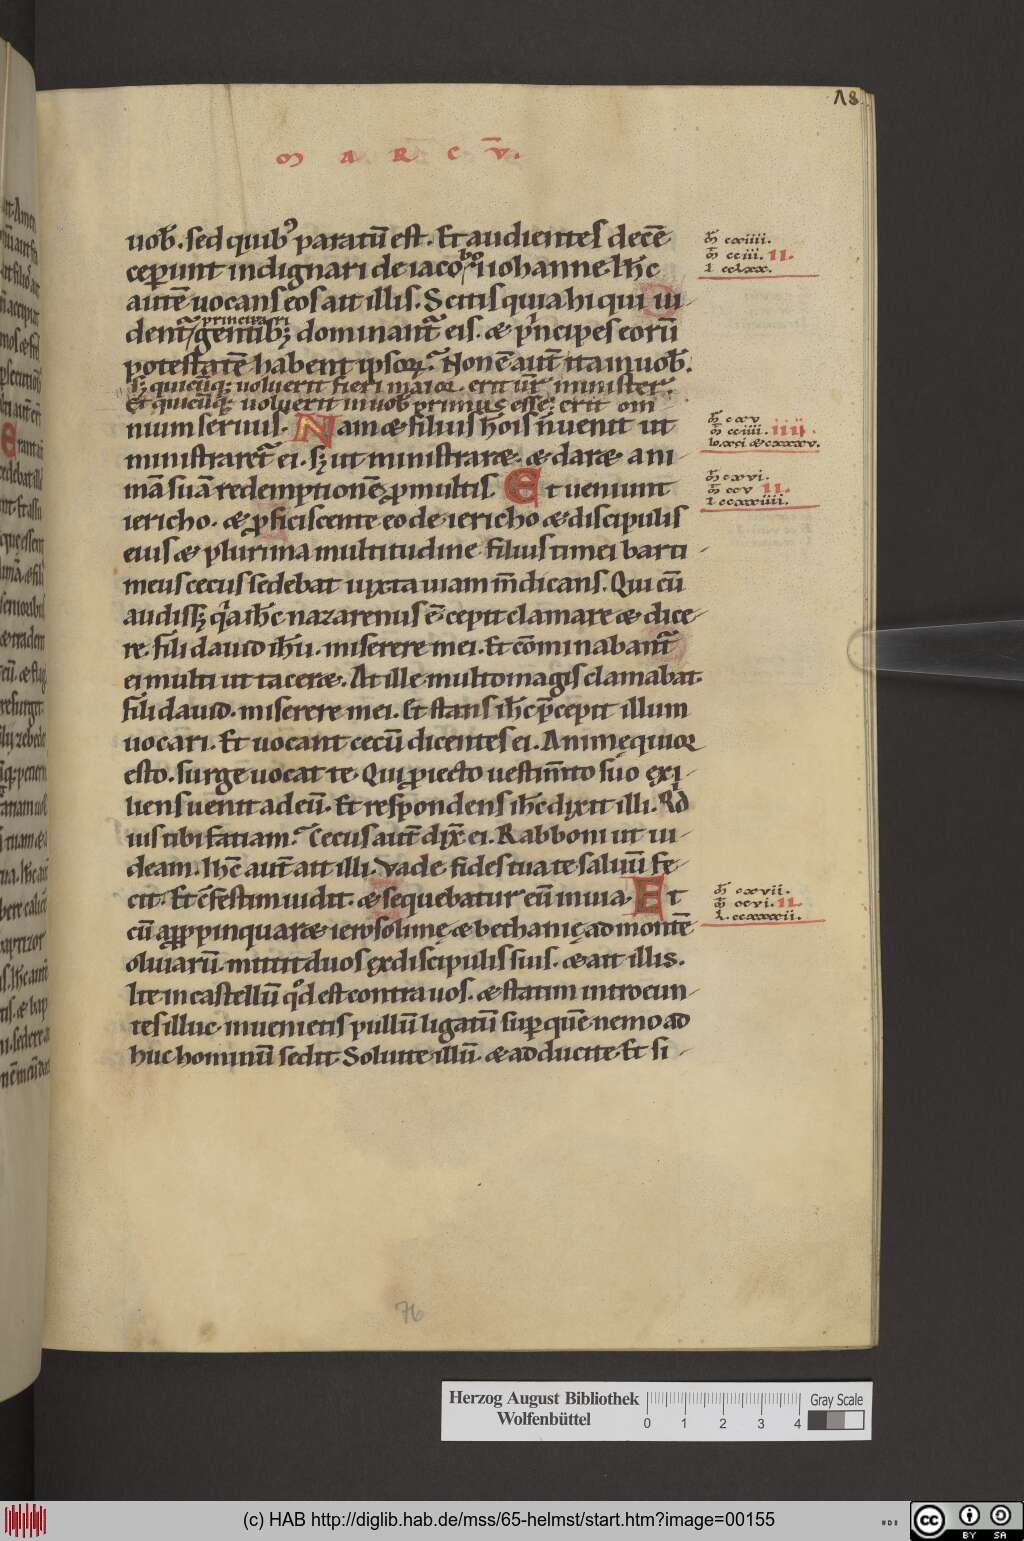 M A R C V̄.
18
uob̄. sed quib⁹ paratū est. Et audientes decē
ceperunt indignari de iacobo & iohanne. Ih̄c
autē uocans eos ait illis. Scitis quia hi qui ui-
principari
dent̄ gentib; dominant̄ eis. & p̄ncipes eorū
potestatē habent ipsoꝝ. Non ē aut̄ ita in uob̄.
sꝫ quicūq; uoluerit fieri maior erit ur̄ minister
et quicūq; uoluerit in uob̄ primus esse; erit om
nium seruus. Nam & filius hōis n̄ uenit ut
ministraret̄ ei. sꝫ ut ministraret & daret ani-
mā suā redemptionē ꝓ multis. Et ueniunt
iericho. & ꝓficiscente eo de iericho & discipulis
eius & plurima multitudine filius timei barti-
meus cecus sedebat iuxta uiam m̄dicans. Qui cū
audissꝫ q̄a ih̄c nazarenus ē cepit clamare & dice-
re. fili dauid ih̄u. miserere mei. Et cōminabant̄
ei multi ut taceret. At ille multo magis clamabat.
fili dauid. miserere mei. Et stans ih̄c p̄cepit illum
uocari. Et uocant cecū dicentes ei. Animęquior
esto. surge uocat te. Qui ꝓiecto uestim̄to suo exi-
liens uenit ad eū. Et respondens ih̄c dixit illi. Qd
uis tibi faciam? Cecus aut̄ dix̄ ei. Rabboni ut ui-
deam. Ih̄c aut̄ ait illi. Vade fides tua te saluū fe-
cit. Et c̄festim uidit. & sequebatur eū in uia. Et
cū appropinquaret ierosolimę & bethanię ad montē
oliuarū. mittit duos ex discipulis suis. & ait illis.
Ite in castellū qd̄ est contra uos. & statim introeun-
tes illuc. inuenietis pullū ligatū sup quē nemo ad
huc hominū sedit. Soluite illū. & adducite. Et si-
m̄ cxiiii.
m̄ cciii. II.
l cclxx.
m̄ cxv
m̄ cciiii. iiii.
m̄ cxvi.
m̄ ccv II.
m̄ cxvii.
m̄ ccvi. II.
76
Herzog August Bibliothek
Wolfenbüttel
0 1 2 3 4
Gray Scale
(c) HAB http://diglib.hab.de/mss/65-helmst/start.htm?image=00155
cc
BY SA